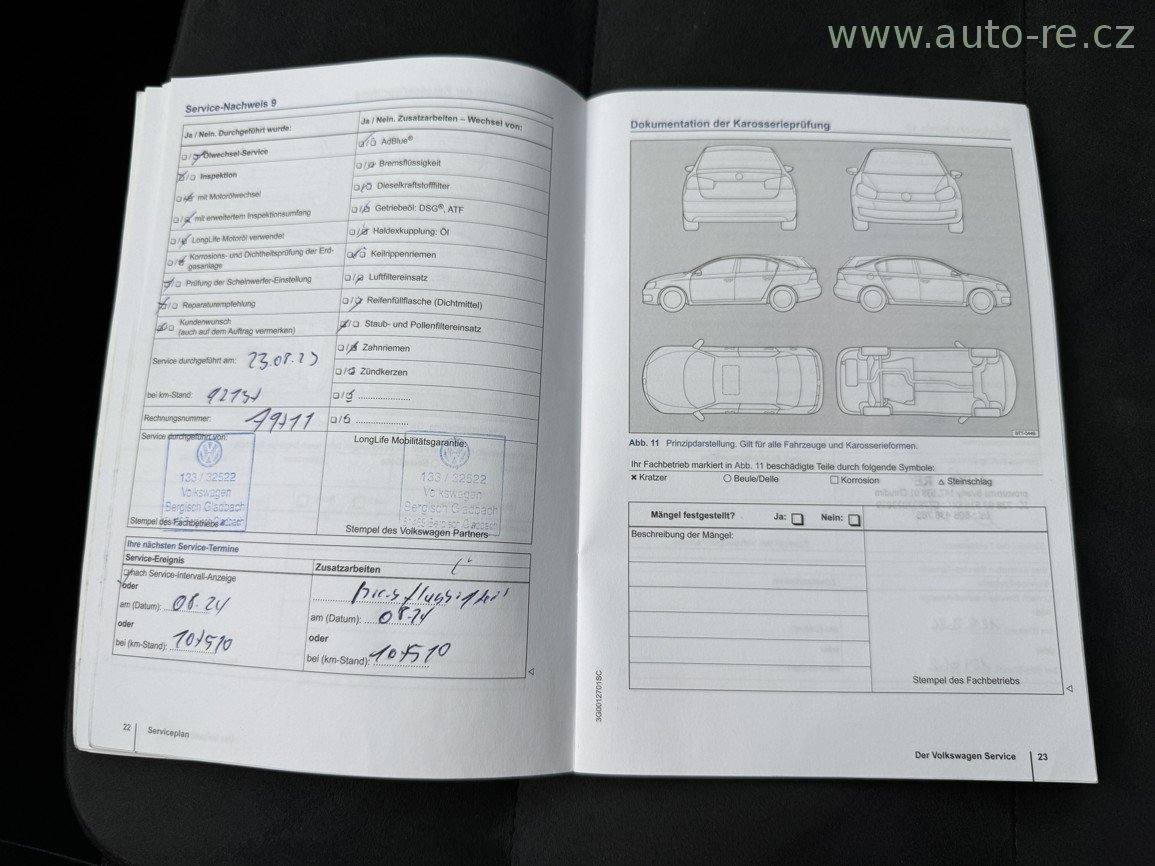 www.auto-re.cz
Service-Nachweis 9
Ja / Nein. Durchgeführt wurde:
Ölwechsel-Service
Inspektion
mit Motorölwechsel
mit erweitertem Inspektionsumfang
LongLife Motoröl verwendet
Korrosions- und Dichtheitsprüfung der Erd-
gasanlage
Prüfung der Scheinwerfer-Einstellung
Reparaturempfehlung
Kundenwunsch
(auch auf dem Auftrag vermerken)
Service durchgeführt am: 23.08.23
bei km-Stand:
Rechnungsnummer:
Service durchgeführt von:
133 / 32522
Volkswagen
Bergisch Gladbach
Stempel des Fachbetriebs
Ja / Nein. Zusatzarbeiten – Wechsel von:
AdBlue®
Bremsflüssigkeit
Dieselkraftstofffilter
Getriebeöl: DSG®, ATF
Haldexkupplung: Öl
Keilrippenriemen
Luftfiltereinsatz
Reifenfüllflasche (Dichtmittel)
Staub- und Pollenfiltereinsatz
Zahnriemen
Zündkerzen
LongLife Mobilitätsgarantie:
133 / 32522
Volkswagen
Bergisch Gladbach
Stempel des Volkswagen Partners
Ihre nächsten Service-Termine
Service-Ereignis
nach Service-Intervall-Anzeige
oder
am (Datum): 08.24
oder
bei (km-Stand): 107510
Zusatzarbeiten
Bremsflüssigkeit
am (Datum): 08.24
oder
bei (km-Stand): 107510
22 Serviceplan
Dokumentation der Karosserieprüfung
Abb. 11 Prinzipdarstellung. Gilt für alle Fahrzeuge und Karosserieformen.
Ihr Fachbetrieb markiert in Abb. 11 beschädigte Teile durch folgende Symbole:
Kratzer Beule/Delle Korrosion Steinschlag
Mängel festgestellt? Ja: Nein:
Beschreibung der Mängel:
Stempel des Fachbetriebs
3G0012701SC
Der Volkswagen Service 23